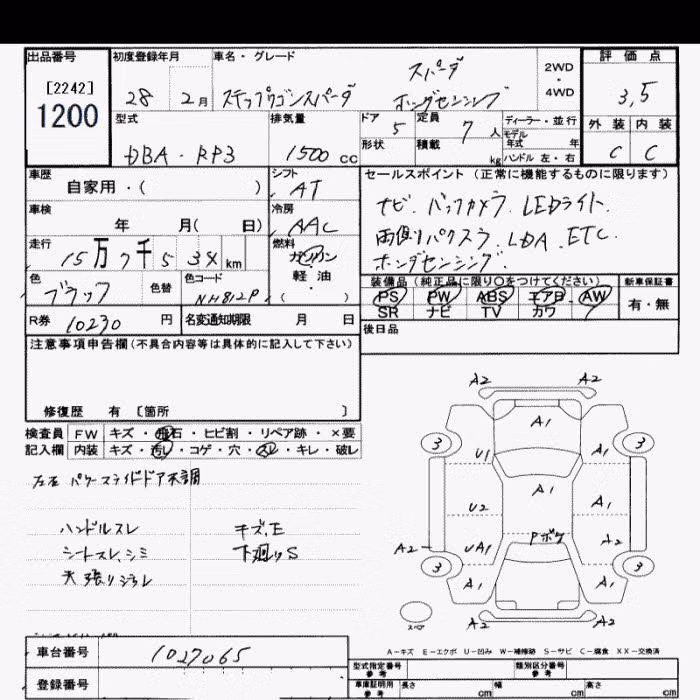 出品番号 初度登録年月 車名・グレード 評価点
[2242]
1200
28 2月 ステップワゴンスパーダ スパーダ ホンダセンシング 2WD・4WD 3,5
型式 排気量 ドア 5 定員 7人 ディーラー・並行 外装 内装
DBA・RP3 1500cc 形状 積載 kg モデル年式 年 ハンドル 左・右 C C
車歴 シフト セールスポイント(正常に機能するものに限ります)
自家用・( ) AT
ナビ、バックカメラ、LEDライト、
車検 冷房
年 月( 日) AAC
両側パワスラ、LDA、ETC、
走行 燃料
15万7千5 3 km ガソリン 軽・油 ( )
ホンダセンシング、
色 色替 色コード
ブラック NH812P
装備品(純正品に限り○をつけてください) 新車保証書
PS PW ABS エアB AW 有・無
SR ナビ TV カワ
R券 10230円 名変通知期限 月 日
後日品
注意事項申告欄(不具合内容等は具体的に記入して下さい)
修復歴 有 〔箇所 〕
検査員 FW キズ・飛石・ヒビ割・リペア跡・×要
記入欄 内装 キズ・汚レ・コゲ・穴・スレ・キレ・破レ
左右 パワースライドドア不調
ハンドルスレ キズ、E
シートスレ、シミ 下廻りS
天張リシミ
A2 A2
A1
3 3
U1
A1
U2 A1
Pボケ
A2 UA1 A2
3 3
A1 A1
A2 A2
スペア
A-キズ E-エクボ U-凹み W-補修跡 S-サビ C-腐食 XX-交換済
車台番号 1027065
型式指定番号 参考 類別区分番号 参考
登録番号
車庫証明用 参考 長さ cm 幅 cm 高さ cm